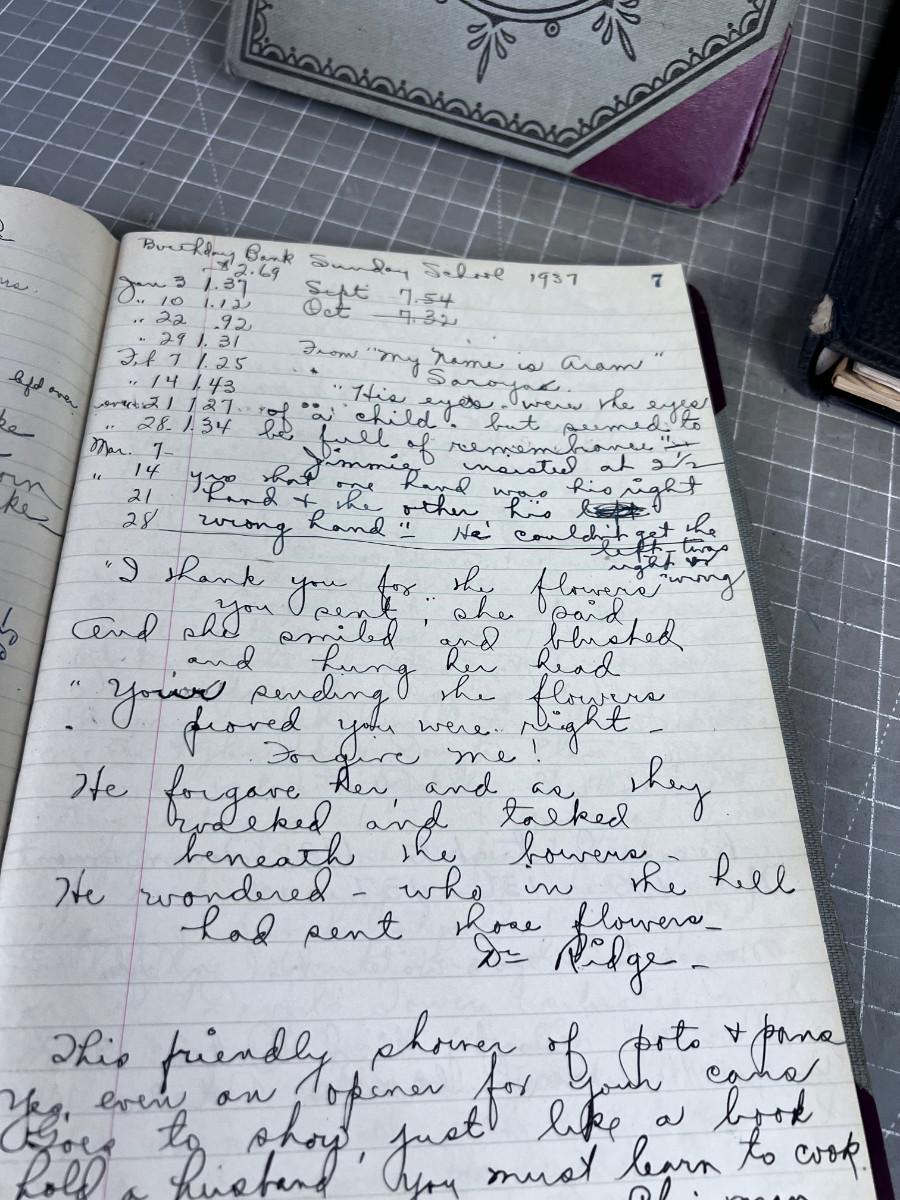 7
Birthday Bank Sunday School 1937
$2.69
Jan 3 1.37 Sept 7.54
" 10 1.12 Oct 7.32
" 22 .92
" 29 1.31
Feb 7 1.25 From "My Name is Aram"
" 14 1.43 Saroyan.
21 1.27 "His eyes were the eyes
" 28 1.34 of a child. but seemed to
Mar. 7 - be full of remembrance"
" 14 Jimmie insisted at 2 1/2
21 yrs that one hand was his right
28 hand & the other his
wrong hand" - He couldn't get the
left - twas
right or
wrong
"I thank you for the flowers
you sent", she said
And she smiled and blushed
and hung her head
"Your sending the flowers
proved you were right -
Forgive me!
He forgave her, and as they
walked and talked
beneath the bowers -
He wondered - who in the hell
had sent those flowers -
Dr Ridge -
This friendly shower of pots & pans
Yes, even an opener for your cans
Goes to show, just like a book
hold a husband, you must learn to cook.
left over